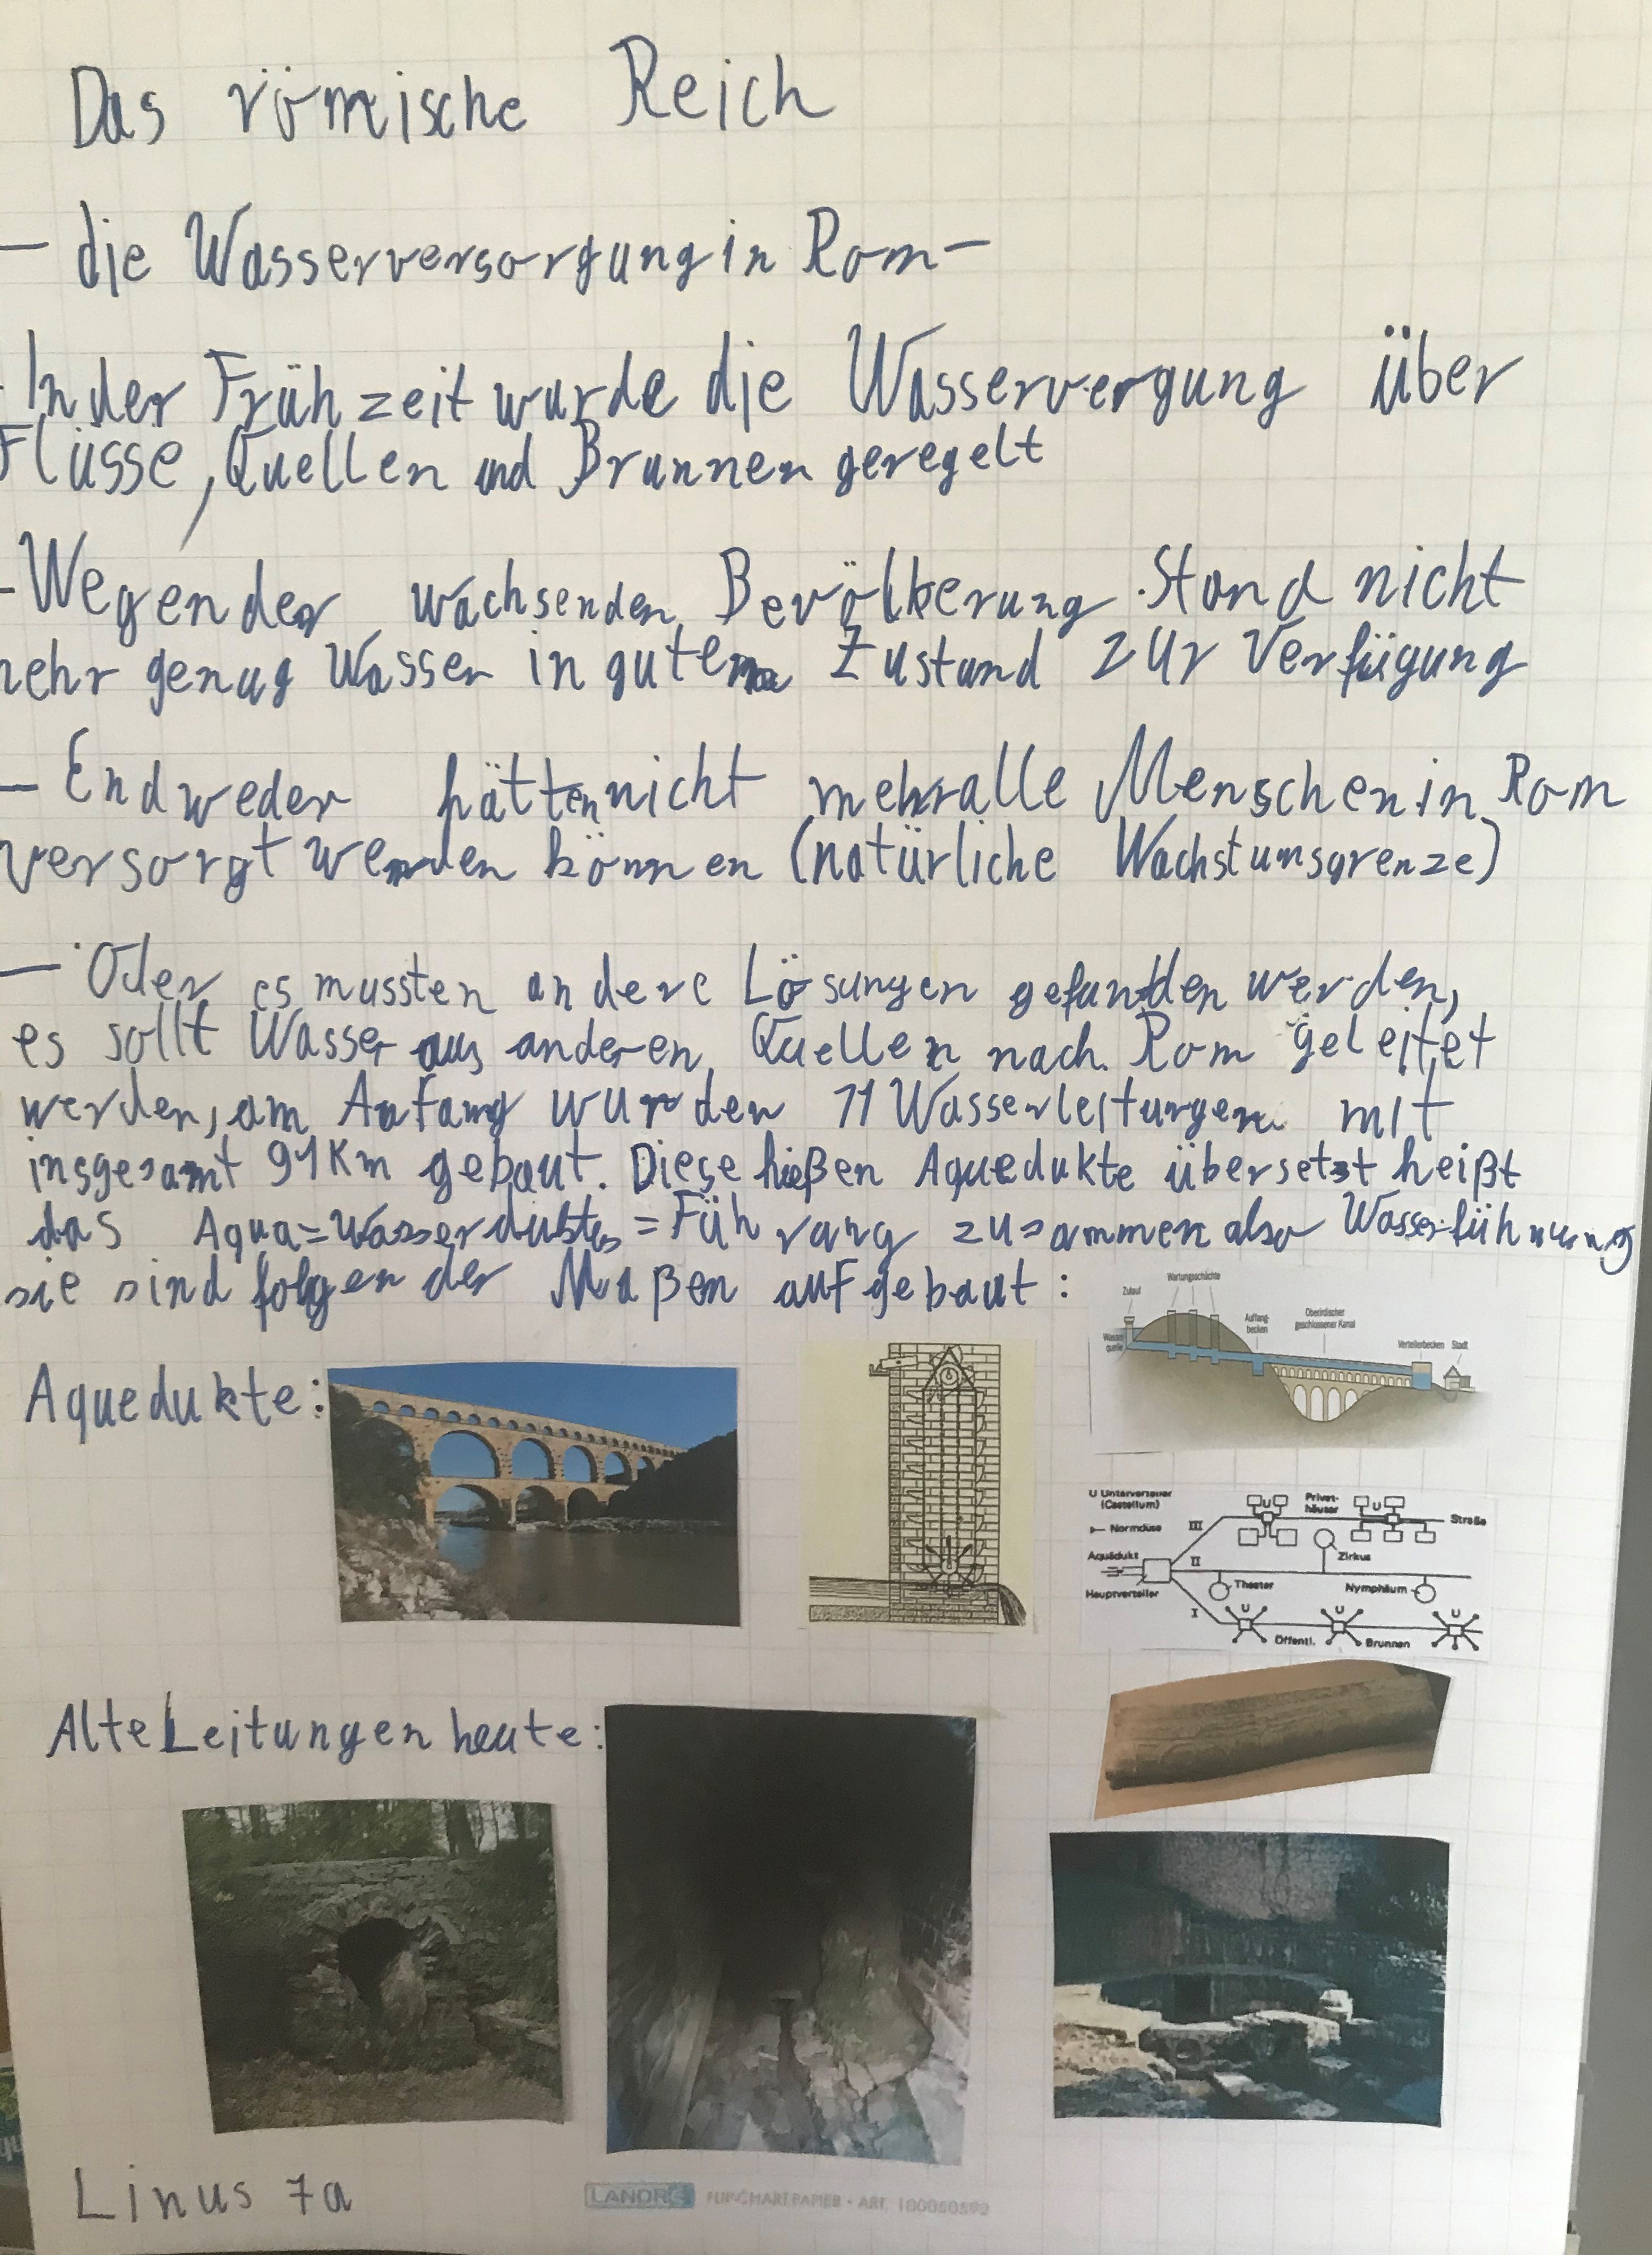 Das römische Reich
– die Wasserversorgung in Rom –
- In der Frühzeit wurde die Wasservergung über
Flüsse, Quellen und Brunnen geregelt
- Wegen der wachsenden Bevölkerung stand nicht
mehr genug Wasser in gutem Zustand zur Verfügung
– Endweder hätten nicht mehr alle Menschen in Rom
versorgt werden können (natürliche Wachstumsgrenze)
– Oder es mussten andere Lösungen gefunden werden,
es sollt Wasser aus anderen Quellen nach Rom geleitet
werden, am Anfang wurden 11 Wasserleitungen mit
insgesamt 91 Km gebaut. Diese hießen Aquedukte übersetzt heißt
das Aqua=Wasser = Führung zusammen also Wasserführung
sie sind folgender Maßen aufgebaut:
Wartungsschächte
Zulauf
Auffang-
becken
Oberirdischer
geschlossener Kanal
Wasser
quelle
Verteilerbecken Stadt
Aquedukte:
U Unterverteiler
(Castellum)
Normdüse
Privat-
häuser
U
U
Straße
III
Aquädukt
II
Zirkus
Hauptverteiler
Theater
Nymphäum
I
U
U
U
Öffentl. Brunnen
Alte Leitungen heute:
Linus 7a
LANDRÉ FLIPCHARTPAPIER • ART.